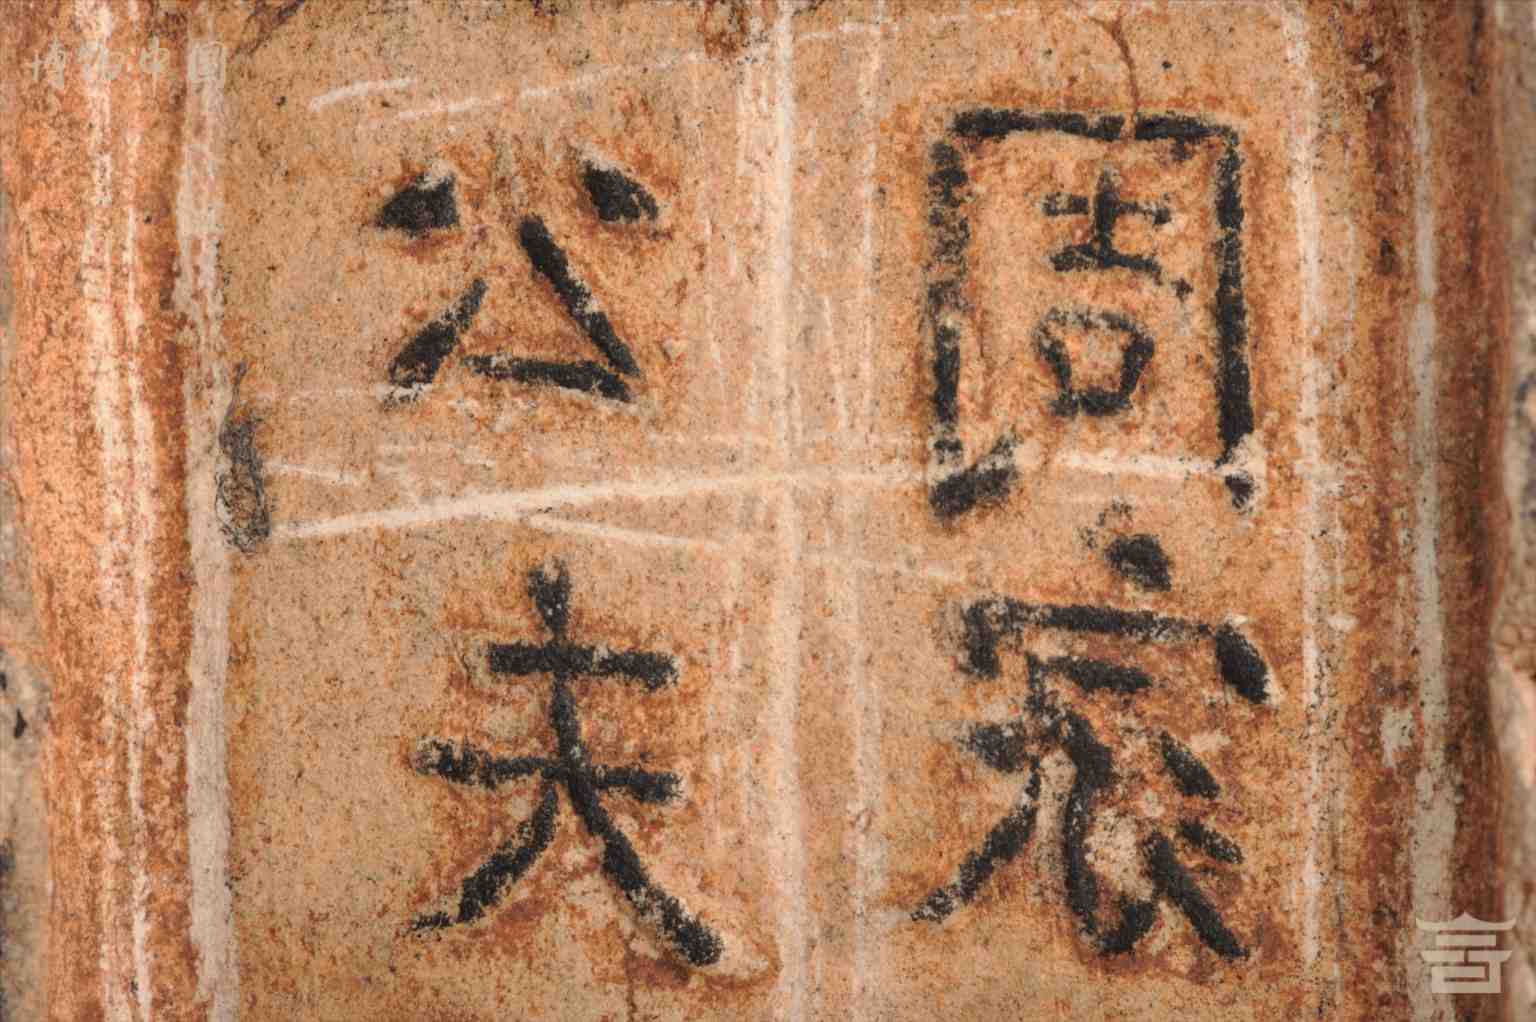 周宸
公夫
博物中国